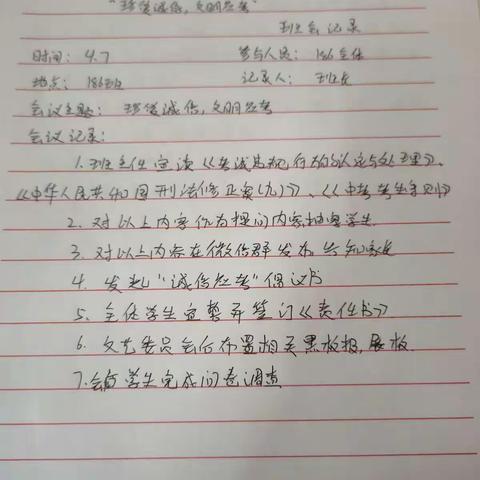 "珍爱诚信，文明应考"
班主会记录
时间：4.7 参与人员：186全体
地点：186班 记录人：班长
会议主题：珍爱诚信，文明应考
会议记录：
1.班主任宣读《考试违规行为的认定与处理》、
《中华人民共和国刑法修正案(九)》、《中考考生守则》
2.对以上内容作为提问内容抽查学生
3.对以上内容在微信群发布，告知家长
4.发起"诚信应考"倡议书
5.全体学生宣誓并签订《责任书》
6.文艺委员会后布置相关黑板报，展板
7.会后学生完成问卷调查